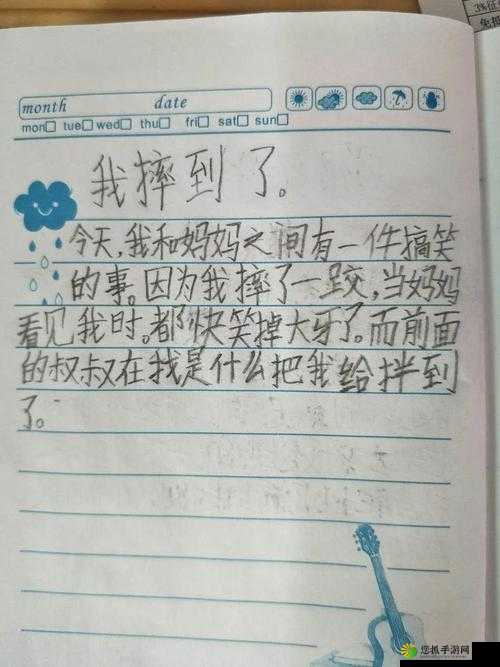 3%征
month date
mon□ tue□ wed□ thu□ fri□ sat□ sun□
我摔到了。
今天,我和妈妈之间有一件搞笑
的事。因为我摔了一跤,当妈妈
看见我时。都快笑掉大牙了。而前面
的叔叔在找是什么把我给拌到
了。
您抓手游网